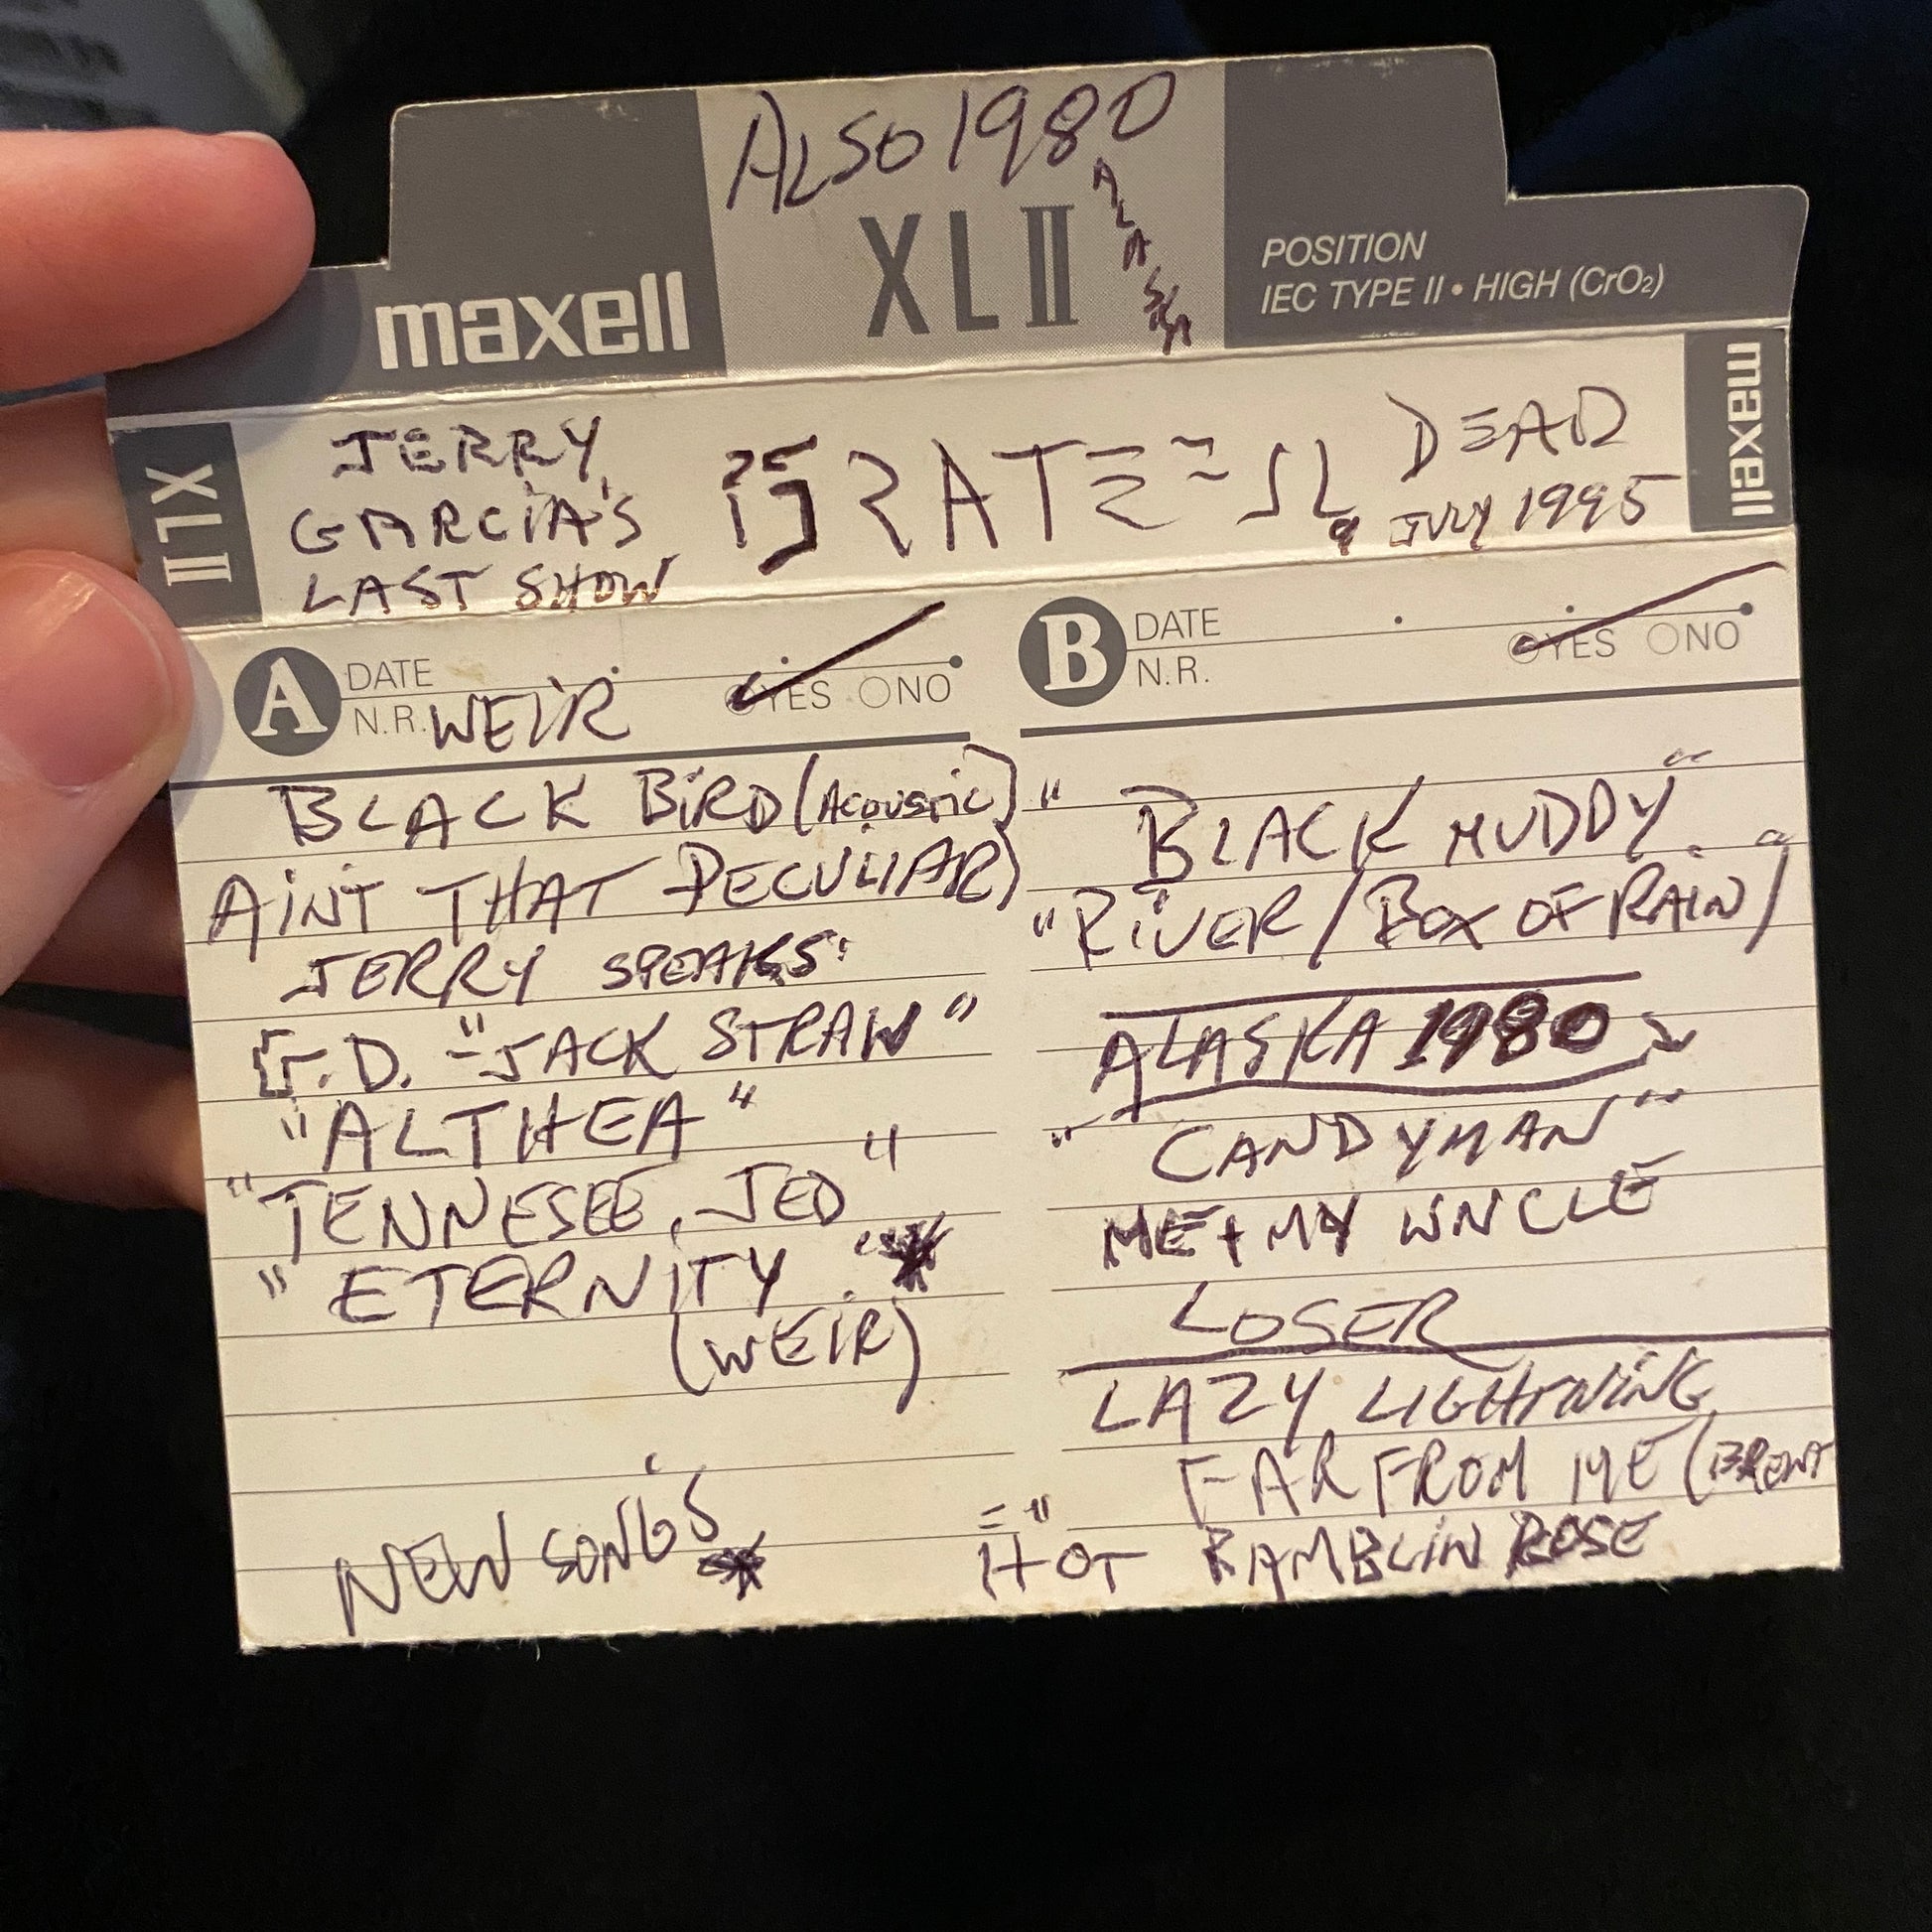 ALSO 1980
ALASKA
maxell
XLII
POSITION
IEC TYPE II • HIGH (CrO₂)
XLII
JERRY
GARCIA'S
LAST SHOW
GRATEFUL
DEAD
JULY 1995
maxell
A DATE
N.R. WEIR YES NO
BLACK BIRD (ACOUSTIC)
AINT THAT PECULIAR)
JERRY SPEAKS:
G.D. "JACK STRAW"
"ALTHEA"
"TENNESEE JED"
"ETERNITY" *
(WEIR)
NEW SONGS
*
B DATE
N.R. YES NO
"BLACK MUDDY"
"RIVER / BOX OF RAIN" /
ALASKA 1980
"CANDYMAN"
ME + MY UNCLE
LOSER
LAZY LIGHTNING
FAR FROM ME (BRENT
HOT RAMBLIN ROSE